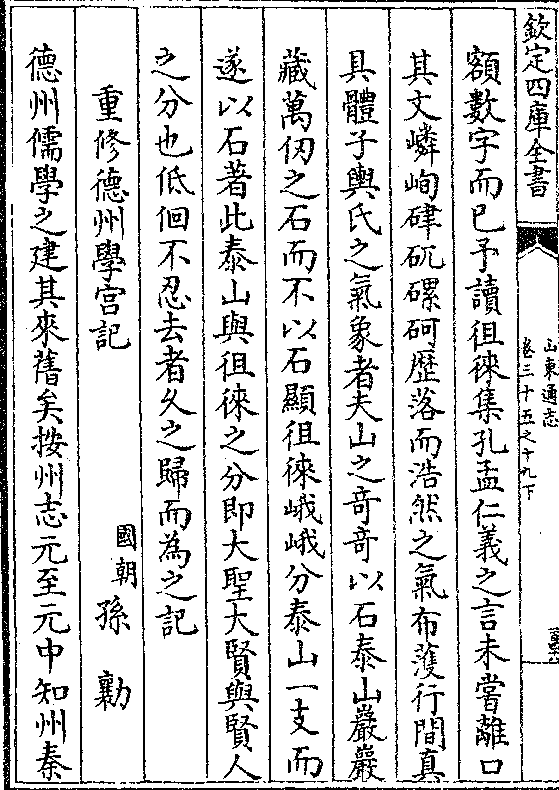 欽定四庫全書
山東通志
卷三十五之十九下
額數字而已予讀徂徠集孔孟仁義之言未嘗離口
其文嶙峋硉矹磥砢歷落而浩然之氣布濩行間真
具體子輿氏之氣象者夫山之奇奇以石泰山巖巖
藏萬仞之石而不以石顯徂徠峨峨分泰山一支而
遂以石著此泰山與徂徠之分即大聖大賢與賢人
之分也低佪不忍去者久之歸而為之記
重修德州學宫記
國朝孫勷
德州儒學之建其來舊矣按州志元至元中知州秦